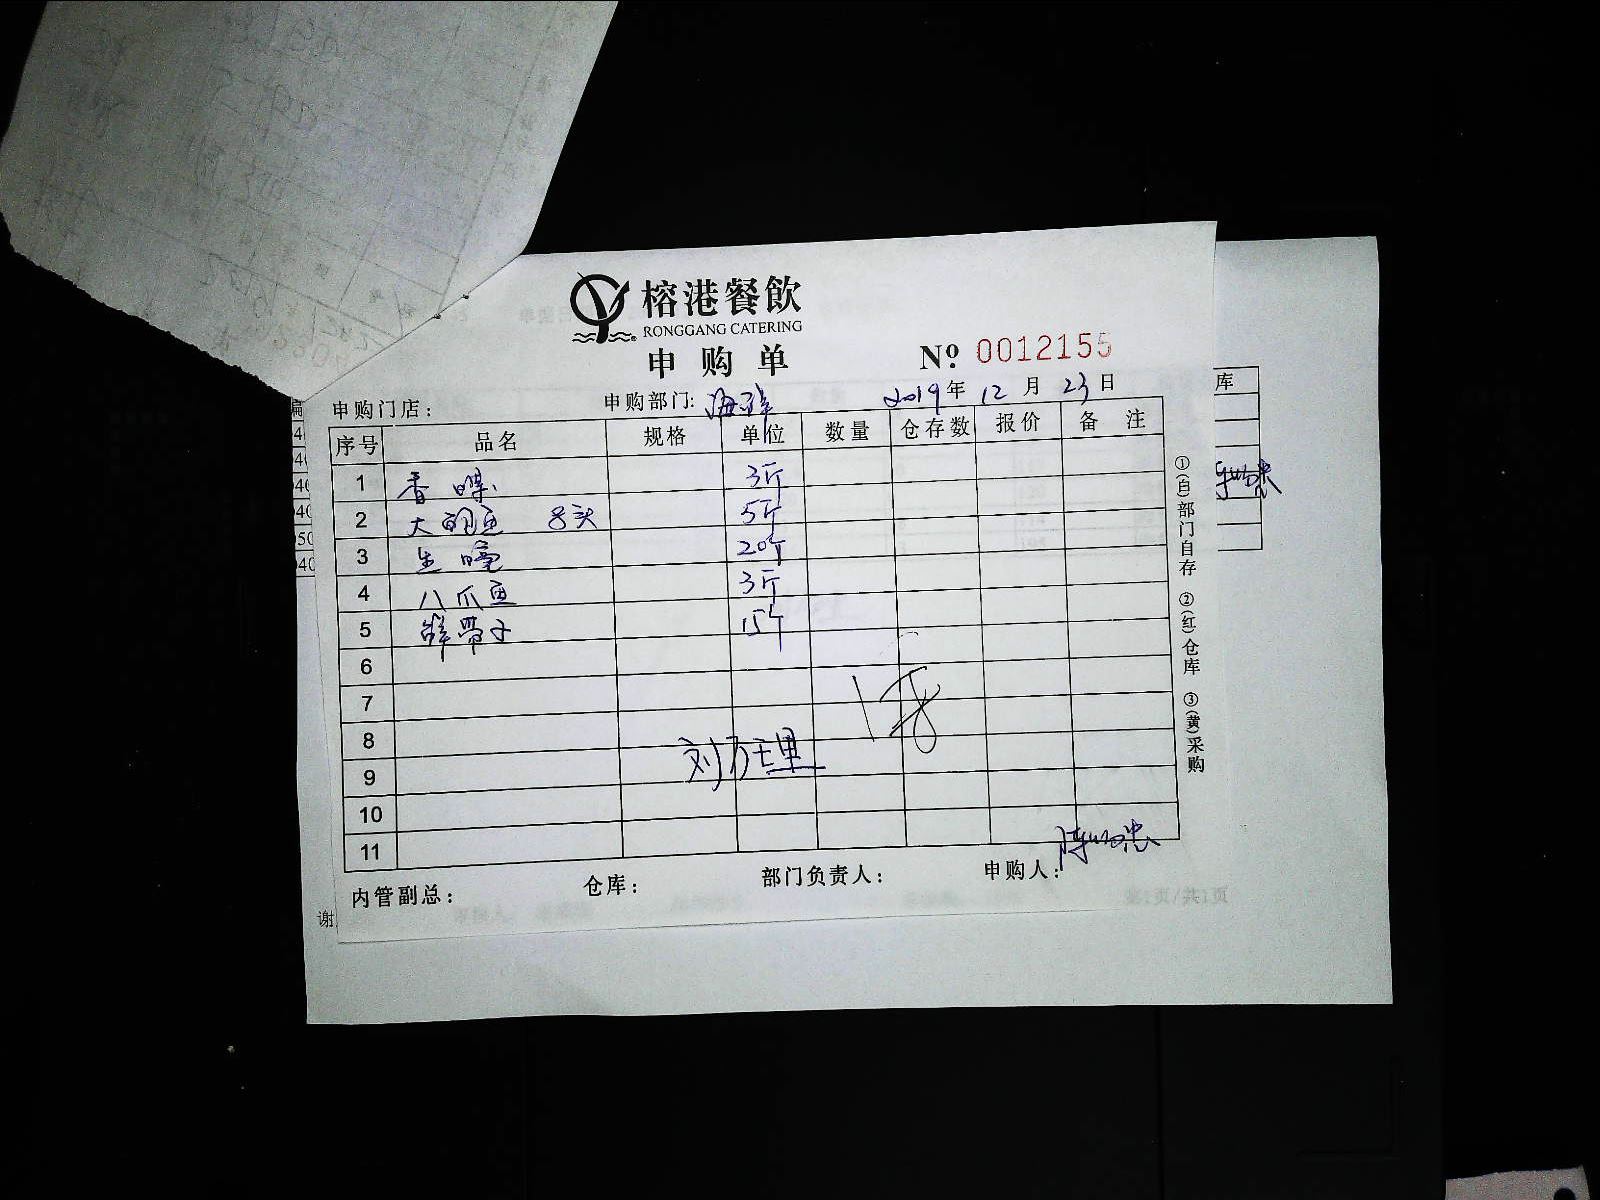 榕港餐飲
RONGGANG CATERING
申购单
Nº 0012155
申购门店： 申购部门: 海鲜 2019年 12月 23日
序号 品名 规格 单位 数量 仓存数 报价 备注
1 香螺 3斤
2 大鲍鱼 8头 5斤
3 生蠔 20个
4 八爪鱼 3斤
5 鲜带子 15个
6
7
8
9
10
11
内管副总： 仓库： 部门负责人： 申购人：
①(白)部门自存 ②(红)仓库 ③(黄)采购
库
谢
第1页/共1页